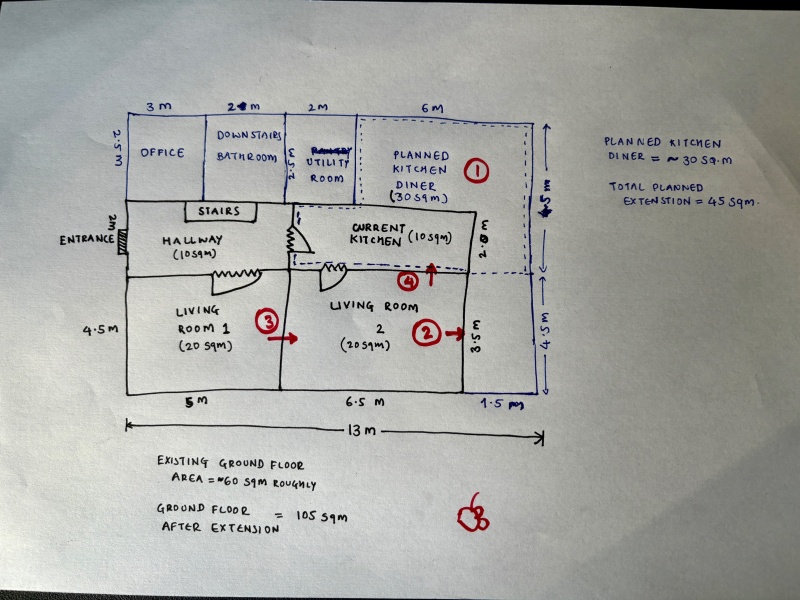 3 m
2 m
2 m
6 m
2.5 m
OFFICE
DOWNSTAIRS
BATHROOM
2.5 m
UTILITY
ROOM
PLANNED
KITCHEN
DINER
(30 sqm)
1
PLANNED KITCHEN
DINER = ~ 30 SQ.M
TOTAL PLANNED
EXTENSTION = 45 sqm.
5 m
STAIRS
2m
ENTRANCE
HALLWAY
(10 sqm)
CURRENT
KITCHEN (10 sqm)
2.0 m
4
4.5 m
LIVING
ROOM 1
(20 sqm)
3
LIVING ROOM
2
(20 sqm)
2
3.5 m
4.5 m
5 m
6.5 m
1.5 m
13 m
EXISTING GROUND FLOOR
AREA = ~60 sqm ROUGHLY
GROUND FLOOR = 105 sqm
AFTER EXTENSION